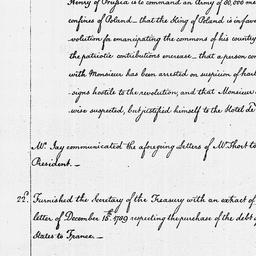 Henry of Prussia is to command an Army of 80,000 me
confines of Poland — that the King of Poland is in favo
volution for emancipating the commons of his country
the patriotic contributions increase — that a person con
with Monsieur has been arrested on suspicion of host
signs hostile to the revolution, and that Monsieur
wise suspected, but justified himself to the Hotel de
Mr. Jay communicated the aforegoing Letters of Mr. Short to
President. —
22d. Furnished the Secretary of the Treasury with an extract of
letter of December 15th. 1789 respecting the purchase of the debt of
States to France. —